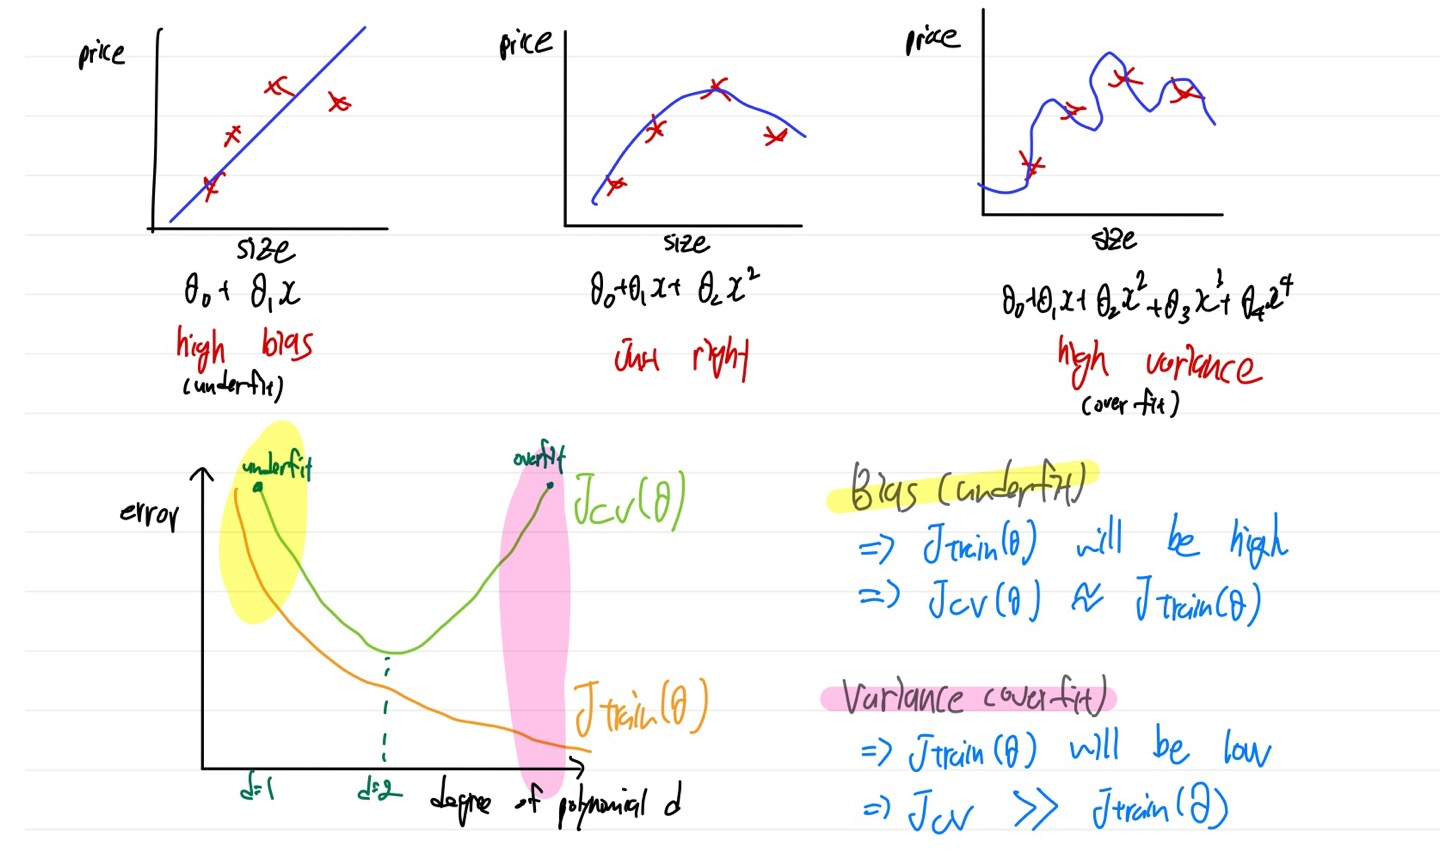 price
size
θ₀ + θ₁x
high bias
(underfit)
price
size
θ₀+θ₁x+ θ₂x²
just right
price
size
θ₀+θ₁x+ θ₂x²+θ₃x³+ θ₄x⁴
high variance
(overfit)
error
underfit
overfit
Jcv(θ)
Jtrain(θ)
d=1
d=2
degree of polynomial d
Bias (underfit)
=> Jtrain(θ) will be high
=> Jcv(θ) ≈ Jtrain(θ)
Variance (overfit)
=> Jtrain(θ) will be low
=> Jcv >> Jtrain(θ)